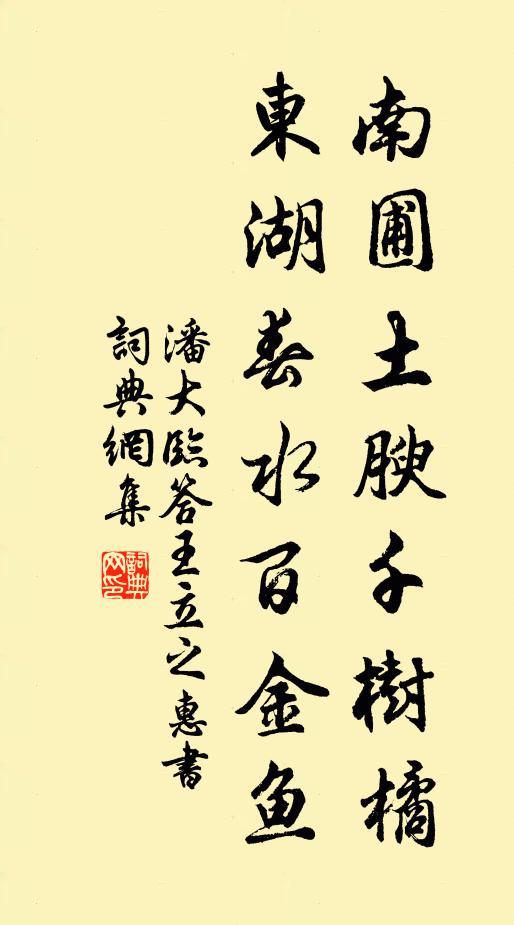 南圃土腴千樹橘
東湖春水百金鱼
潘大臨答王立之惠書
詞典網集
詞典网印